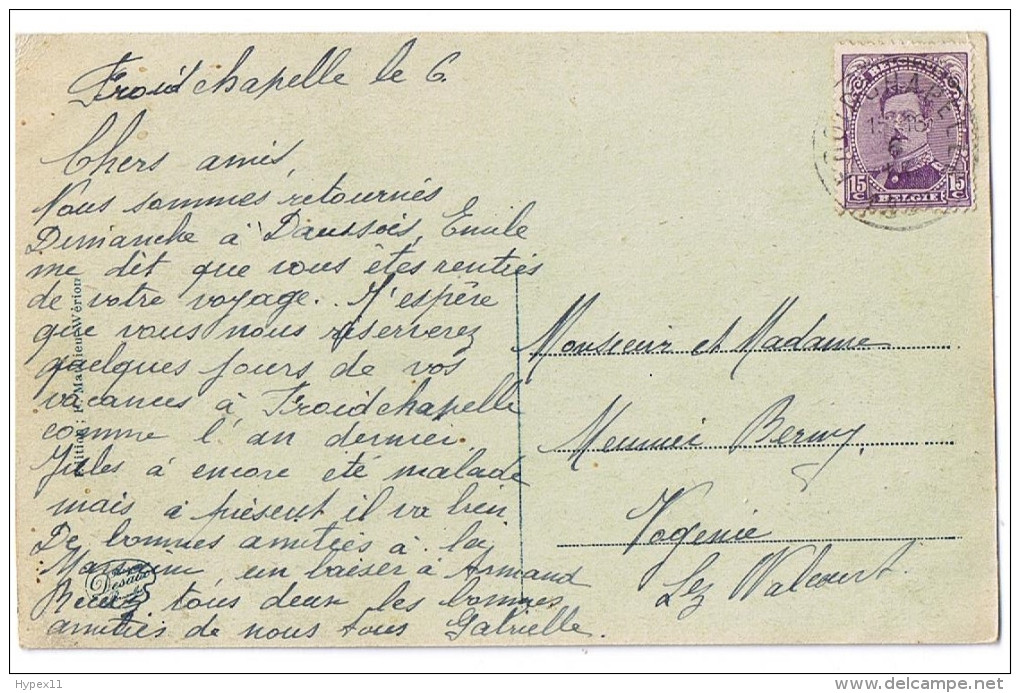 Froidchapelle le 6.
Chers amis,
Nous sommes retournés
Dimanche à Daussois, Emile
me dit que vous êtes rentrés
de votre voyage. J'espère
que vous nous réserverez
quelques jours de vos
vacances à Froidchapelle
comme l'an dernier
Jules à encore été malade
mais à présent il va bien
De bonnes amitiés à la
un baiser à Armand
Recevez tous deux les bonnes
amitiés de nous tous Gabrielle.
Monsieur et Madame
Meunier
Vogenée
Lez Walcourt.
Edition : F. Mathieu-Wérion
BELGIQUE
15 C
15 C
BELGIE
FROIDCHAPELLE
Désaix
Hypex11
www.delcampe.net